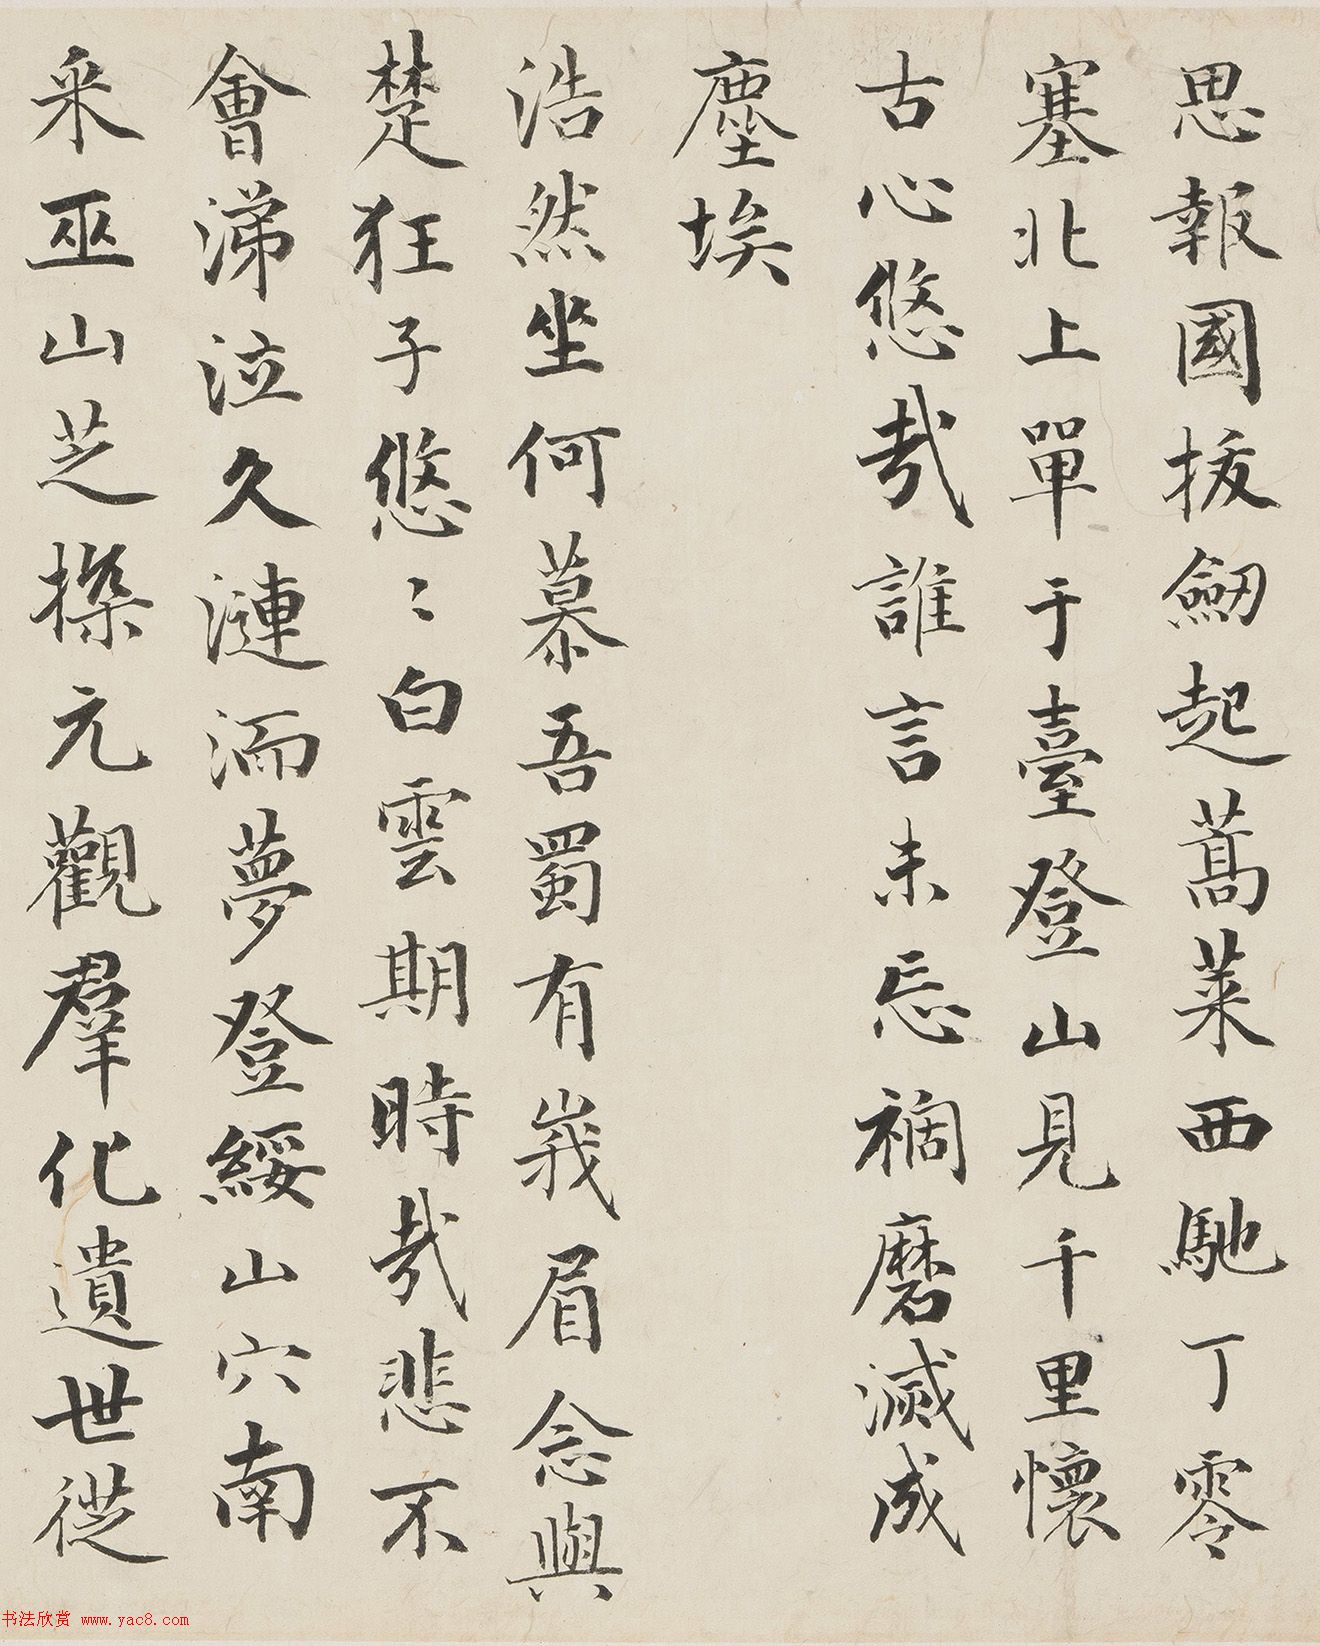 思報國拔劒起蒿萊西馳丁零
塞北上單于臺登山見千里懷
古心悠哉誰言未忘禍磨滅成
塵埃
浩然坐何慕吾蜀有峩眉念與
楚狂子悠〻白雲期時哉悲不
會涕泣久漣洏夢登綏山穴南
采巫山芝探元觀羣化遺世從
书法欣赏 www.yac8.com